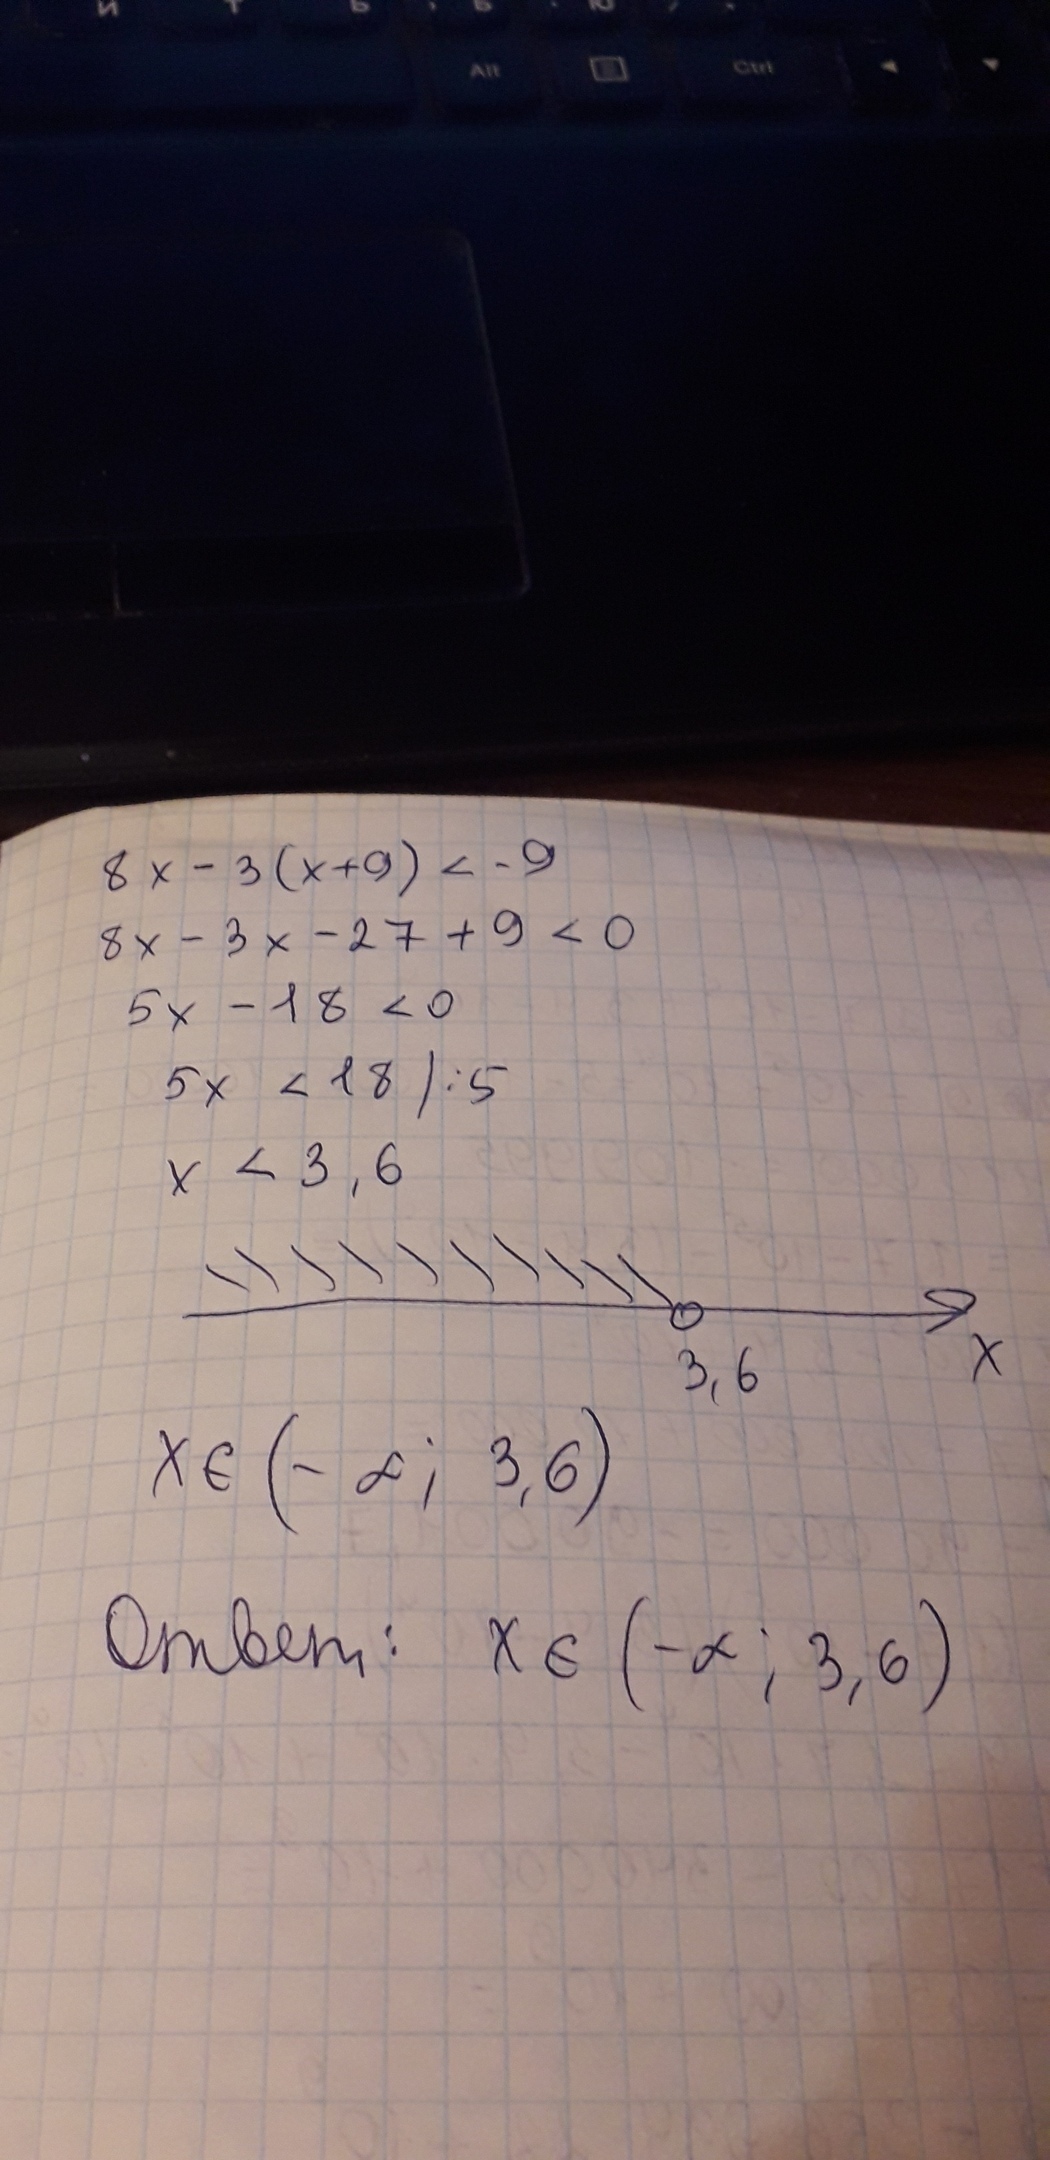 Alt Ctrl
8x - 3(x+9) < -9
8x - 3x - 27 + 9 < 0
5x - 18 < 0
5x < 18 | :5
x < 3,6
3,6
x
x ∈ (-∞; 3,6)
Ответ: x ∈ (-∞; 3,6)